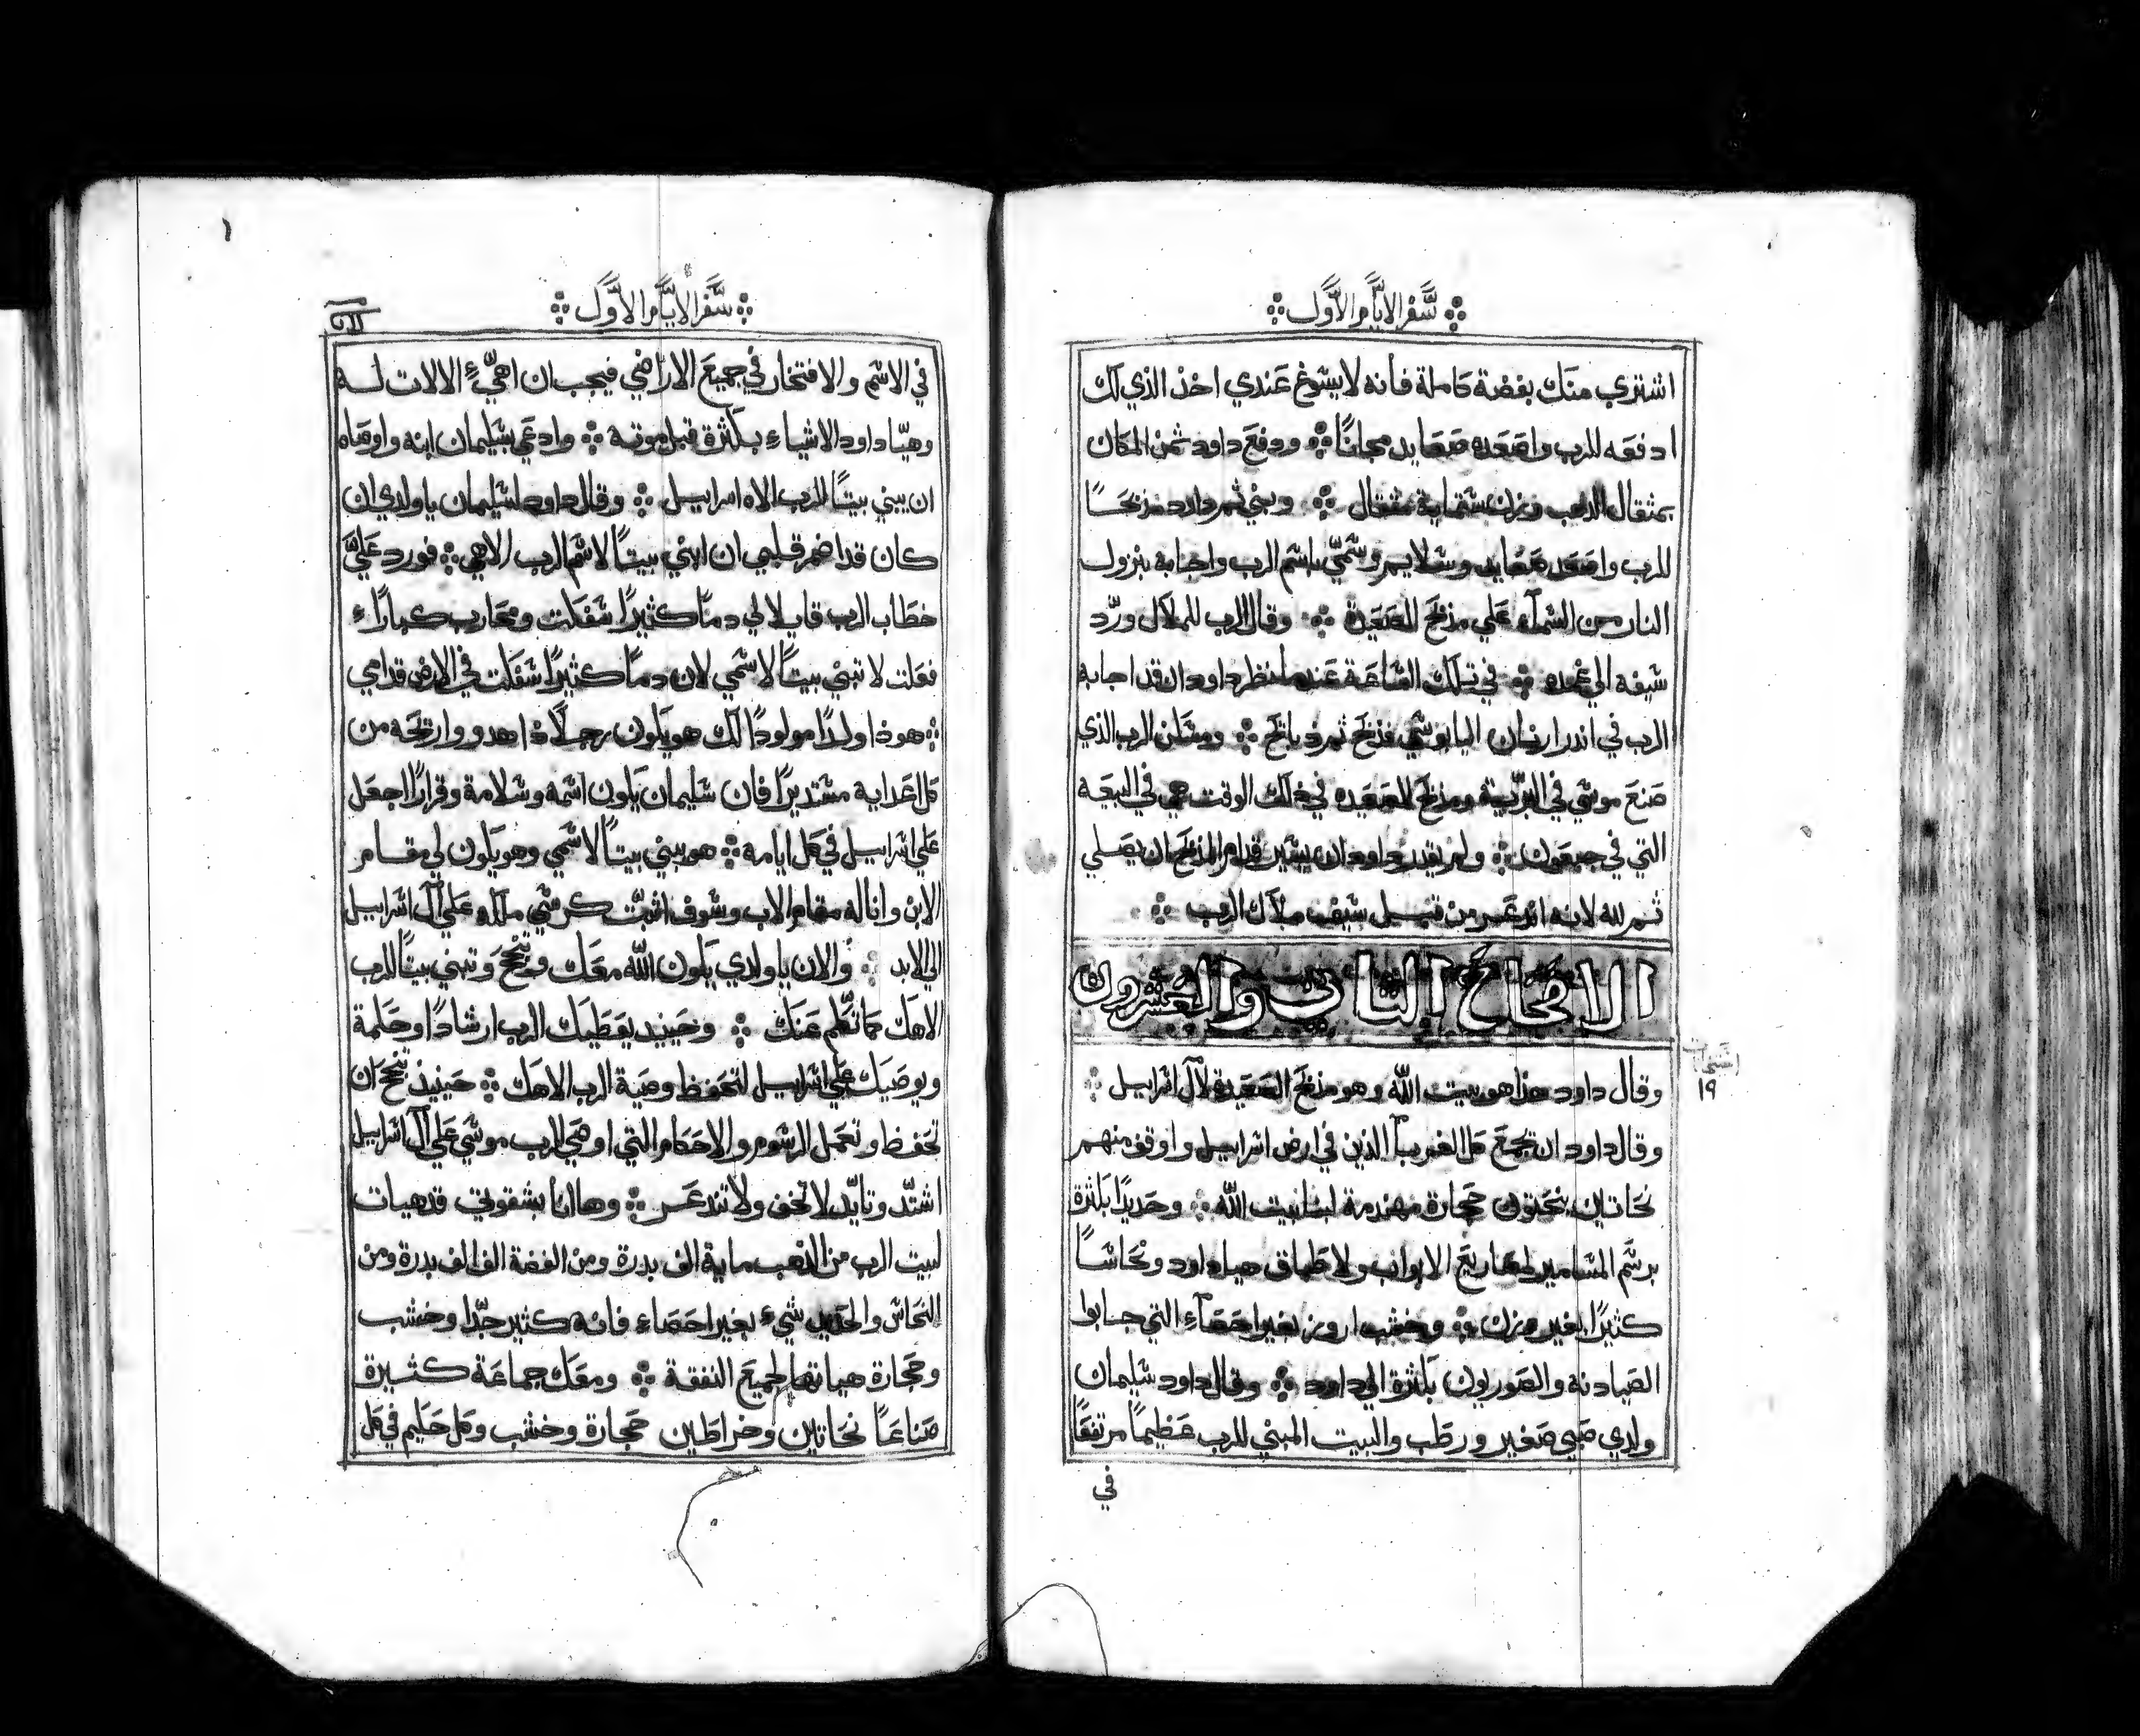 سفر الايام الاول
اشتري منك بفضة كاملة فانه لا يسوغ عندي اخذ الذي لك
ادفعه للرب واصعده صعايد مجانًا ودفع داود ثمن المكان
بمثقال الذهب وزن ستماية مثقال وبني ثم داود مذبحًا
للرب واصعد صعايد وسلايم وسمّي باسم الرب واجابه بنزول
النار من السمآء علي مذبح الصعيدة وقال الرب للملاك وردّ
سيفه الي غمده في تلك الساعة عندما نظر داود ان قد اجابه
الرب في اندر ارنان اليابوسي فذبح ثم ذبايح ومسكن الرب الذي
صنع موسي في البرّية ومذبح الصعيده في ذلك الوقت هي في البيعه
التي في جبعون ولم يقدر داود ان يسير قدام المذبح ان يصلي
ثم لله لانه اندعر من قبل سيف ملاك الرب
الاصحاح الثاني والعشرون
١٩
وقال داود هذا هو بيت الله وهو مذبح الصعيدة لآل اسراييل
وقال داود ان تجمع كل الغربآ الذين في ارض اسراييل واوقف منهم
نحاتين ينحتون حجارة مهندمة لبنا بيت الله وحديدًا بكثرة
برسم المسامير لمصاريع الابواب ولاطباق هيا داود ونحاسًا
كثيرًا بغير وزن وخشب ارز بغير احصآء التي جابوا
الصيادنه والصوريون بكثرة الي داود وقال داود سليمان
ولدي صبي صغير ورطب والبيت المبني للرب عظيمًا مرتفعًا
في
سفر الايام الاول
في الاسم والافتخار في جميع الاراضي فيجب ان اهيّء الالات له
وهيّا داود الاشياء بكثرة قبل موته وادعي بسليمان ابنه واوصاه
ان يبني بيتًا للرب الاه اسراييل وقال داود لسليمان يا ولدي ان
كان قد اضمر قلبي ان ابني بيتًا لاسم الرب الاهي فورد عليّ
خطاب الرب قايلا لي دمًا كثيرًا سفكت ومحارب كبارًا
فعلت لا تبني بيتًا لاسمي لان دمًا كثيرًا سفكت في الارض قدامي
هوذا ولدًا مولودًا لك هو يكون رجلًا ذا هدو وارتحه من
كل اعدايه مستديرًا فان سليمان يكون اسمه وسلامة وقرارًا اجعل
علي اسراييل في كل ايامه هو يبني بيتًا لاسمي وهو يكون لي مقام
الابن وانا له مقام الاب وسوف اثبّت كرسي ملكه علي آل اسراييل
الي الابد والان يا ولدي يكون الله معك وتنجح وتبني بيتًا للرب
الاهك كما تكلم عنك وحينيد يعطيك الرب ارشادًا وحكمة
ويوصيك علي اسراييل لتحفظ وصية الرب الاهك حينيذ تنجح ان
تحفظ وتعمل الرسوم والاحكام التي اوصي الرب موسي علي آل اسراييل
اشتدّ وتايّد لا تخف ولا تندعر وها انا بشقوتي قد هيات
لبيت الرب من الذهب ماية الف بدرة ومن الفضة الف الف بدرة ومن
النحاس والحديد شيء بغير احصاء فانه كثير جدًّا وخشب
وحجارة هياتها لجميع النفقة ومعك جماعة كثيرة
صناعًا نحاتين وخراطين حجارة وخشب وكل حكيم في كل